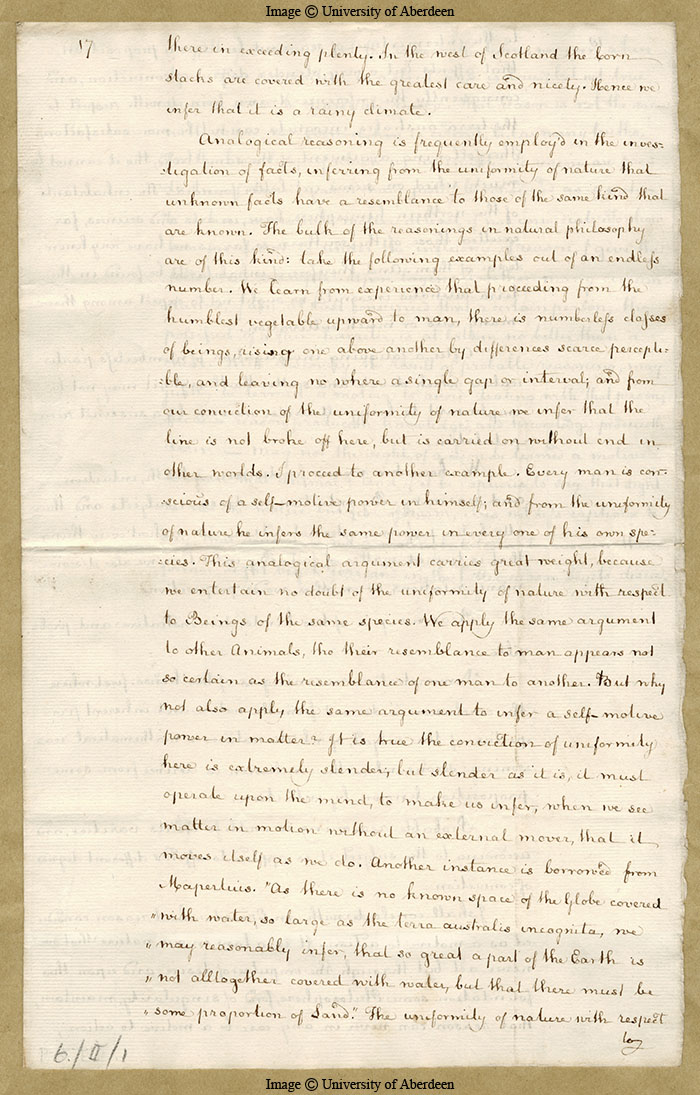 Image © University of Aberdeen
17
there in exceeding plenty. In the west of Scotland the Corn
stacks are covered with the greatest care and nicety. Hence we
infer that it is a rainy climate.
Analogical reasoning is frequently employ'd in the inves-
:tigation of facts, inferring from the uniformity of nature that
unknown facts have a resemblance to those of the same kind that
are known. The bulk of the reasonings in natural philosophy
are of this kind: take the following examples out of an endless
number. We learn from experience that proceeding from the
humblest vegetable upward to man, there is numberless classes
of beings, rising one above another by differences scarce percepti-
:ble, and leaving no where a single gap or interval; and from
our conviction of the uniformity of nature we infer that the
line is not broke off here, but is carried on without end in
other worlds. I proceed to another example. Every man is con-
:scious of a self-motive power in himself; and from the uniformity
of nature he infers the same power in every one of his own spe-
:cies. This analogical argument carries great weight, because
we entertain no doubt of the uniformity of nature with respect
to Beings of the same species. We apply the same argument
to other Animals, tho their resemblance to man appears not
so certain as the resemblance of one man to another. But why
not also apply the same argument to infer a self-motive
power in matter? It is true the conviction of uniformity
here is extremely slender; but slender as it is, it must
operate upon the mind, to make us infer, when we see
matter in motion without an external mover, that it
moves itself as we do. Another instance is borrowed from
Mapertuis. "As there is no known space of the Globe covered
"with water, so large as the terra australis incognita, we
"may reasonably infer, that so great a part of the Earth is
"not alltogether covered with water, but that there must be
"some proportion of Land." The uniformity of nature with respect
to
6/II/1
Image © University of Aberdeen